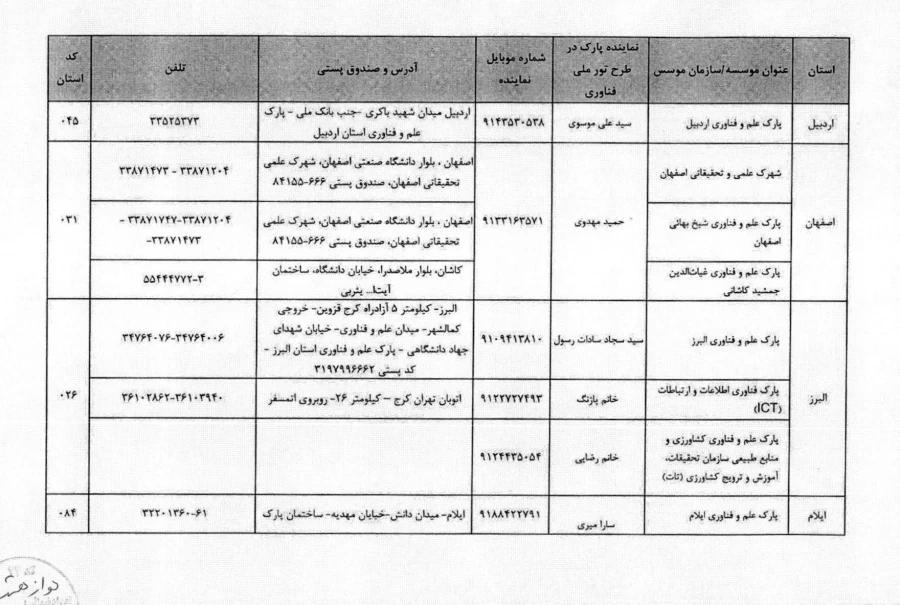 استان
عنوان موسسه/سازمان موسس
نماینده پارک در
طرح تور ملی
فناوری
شماره موبایل
نماینده
آدرس و صندوق پستی
تلفن
کد
استان
اردبیل
پارک علم و فناوری اردبیل
سید علی موسوی
۹۱۴۳۵۳۰۵۳۸
اردبیل میدان شهید باکری -جنب بانک ملی - پارک
علم و فناوری استان اردبیل
۳۳۵۲۵۳۷۳
۰۴۵
اصفهان
شهرک علمی و تحقیقاتی اصفهان
حمید مهدوی
۹۱۳۳۱۶۳۵۷۱
اصفهان ، بلوار دانشگاه صنعتی اصفهان، شهرک علمی
تحقیقاتی اصفهان، صندوق پستی ۶۶۶-۸۴۱۵۵
۳۳۸۷۱۲۰۴ - ۳۳۸۷۱۴۷۳
۰۳۱
پارک علم و فناوری شیخ بهائی
اصفهان
اصفهان ، بلوار دانشگاه صنعتی اصفهان، شهرک علمی
تحقیقاتی اصفهان، صندوق پستی ۶۶۶-۸۴۱۵۵
۳۳۸۷۱۲۰۴-۳۳۸۷۱۷۴۷ -
۳۳۸۷۱۴۷۳-
پارک علم و فناوری غیاث‌الدین
جمشید کاشانی
کاشان، بلوار ملاصدرا، خیابان دانشگاه، ساختمان
آیت‌ا... یثربی
۵۵۴۴۴۷۷۲-۳
البرز
پارک علم و فناوری البرز
سید سجاد سادات رسول
۹۱۰۹۴۱۳۸۱۰
البرز- کیلومتر ۵ آزادراه کرج قزوین- خروجی
کمالشهر- میدان علم و فناوری- خیابان شهدای
جهاد دانشگاهی - پارک علم و فناوری استان البرز -
کد پستی ۳۱۹۷۹۹۶۶۶۲
۳۴۷۶۴۰۷۶-۳۴۷۶۴۰۰۶
۰۲۶
پارک فناوری اطلاعات و ارتباطات
(ICT)
خانم پازنگ
۹۱۲۲۷۲۷۴۹۳
اتوبان تهران کرج – کیلومتر ۲۶- روبروی اتمسفر
۳۶۱۰۲۸۶۲-۳۶۱۰۳۹۴۰
پارک علم و فناوری کشاورزی و
منابع طبیعی سازمان تحقیقات،
آموزش و ترویج کشاورزی (تات)
خانم رضایی
۹۱۲۴۴۳۵۰۵۴
ایلام
پارک علم و فناوری ایلام
سارا میری
۹۱۸۸۴۲۲۷۹۱
ایلام- میدان دانش-خیابان مهدیه- ساختمان پارک
۳۲۲۰۱۳۶۰-۶۱
۰۸۴